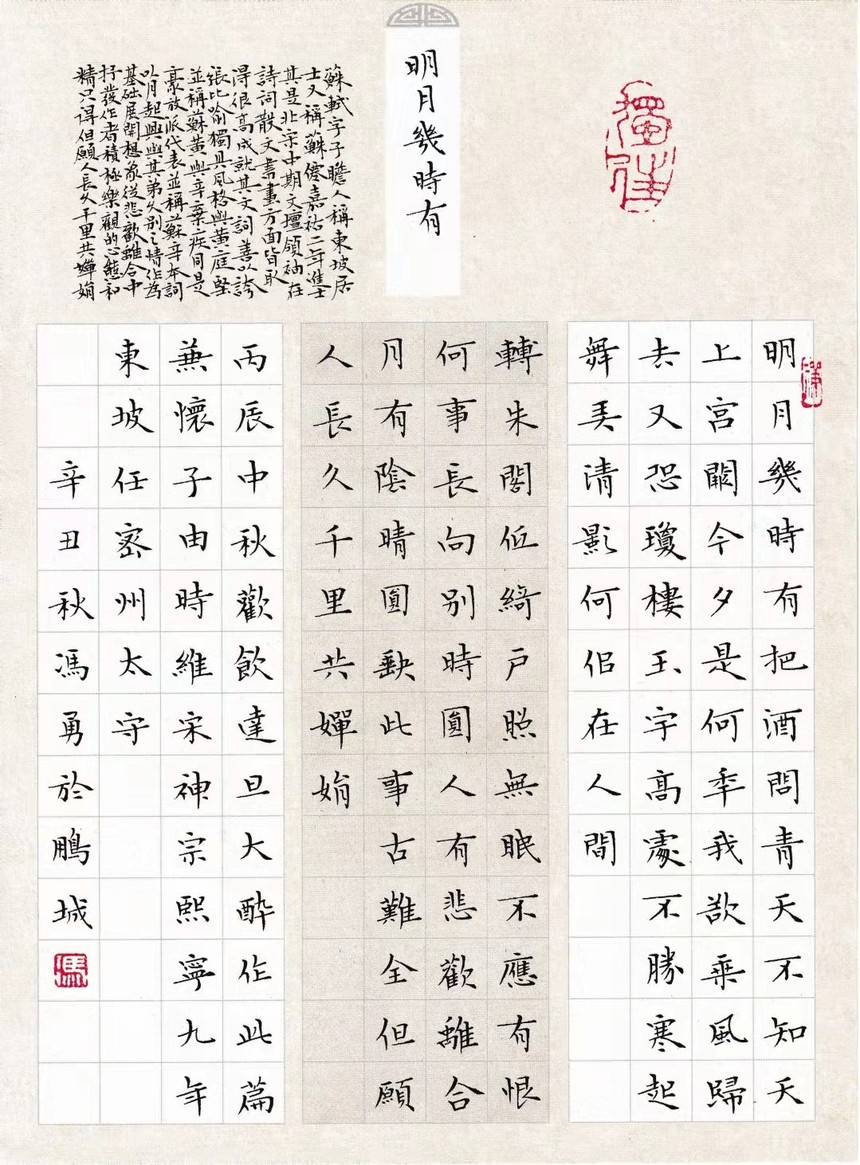 明月幾時有
蘇軾字子瞻人稱東坡居
士又稱蘇僊嘉祐二年進士
其是北宋中期文壇領袖在
詩詞散文書畫方面皆取
得很高成就其文詞善以誇
張比喻獨具風格與黃庭堅
並稱蘇黃與辛棄疾同是
豪放派代表並稱蘇辛本詞
以月起興與其弟久別之情作為
基础展開想象從悲歡離合中
抒發作者積極樂觀的心態和
精只得但願人長久千里共嬋娟
明月幾時有把酒問青天不知天
上宮闕今夕是何年我欲乘風歸
去又恐瓊樓玉宇高處不勝寒起
舞弄清影何佀在人間
轉朱閣低綺戶照無眠不應有恨
何事長向別時圓人有悲歡離合
月有陰晴圓缺此事古難全但願
人長久千里共嬋娟
丙辰中秋歡飲達旦大醉作此篇
兼懷子由時維宋神宗熙寧九年
東坡任密州太守
辛丑秋馮勇於鵬城
馮